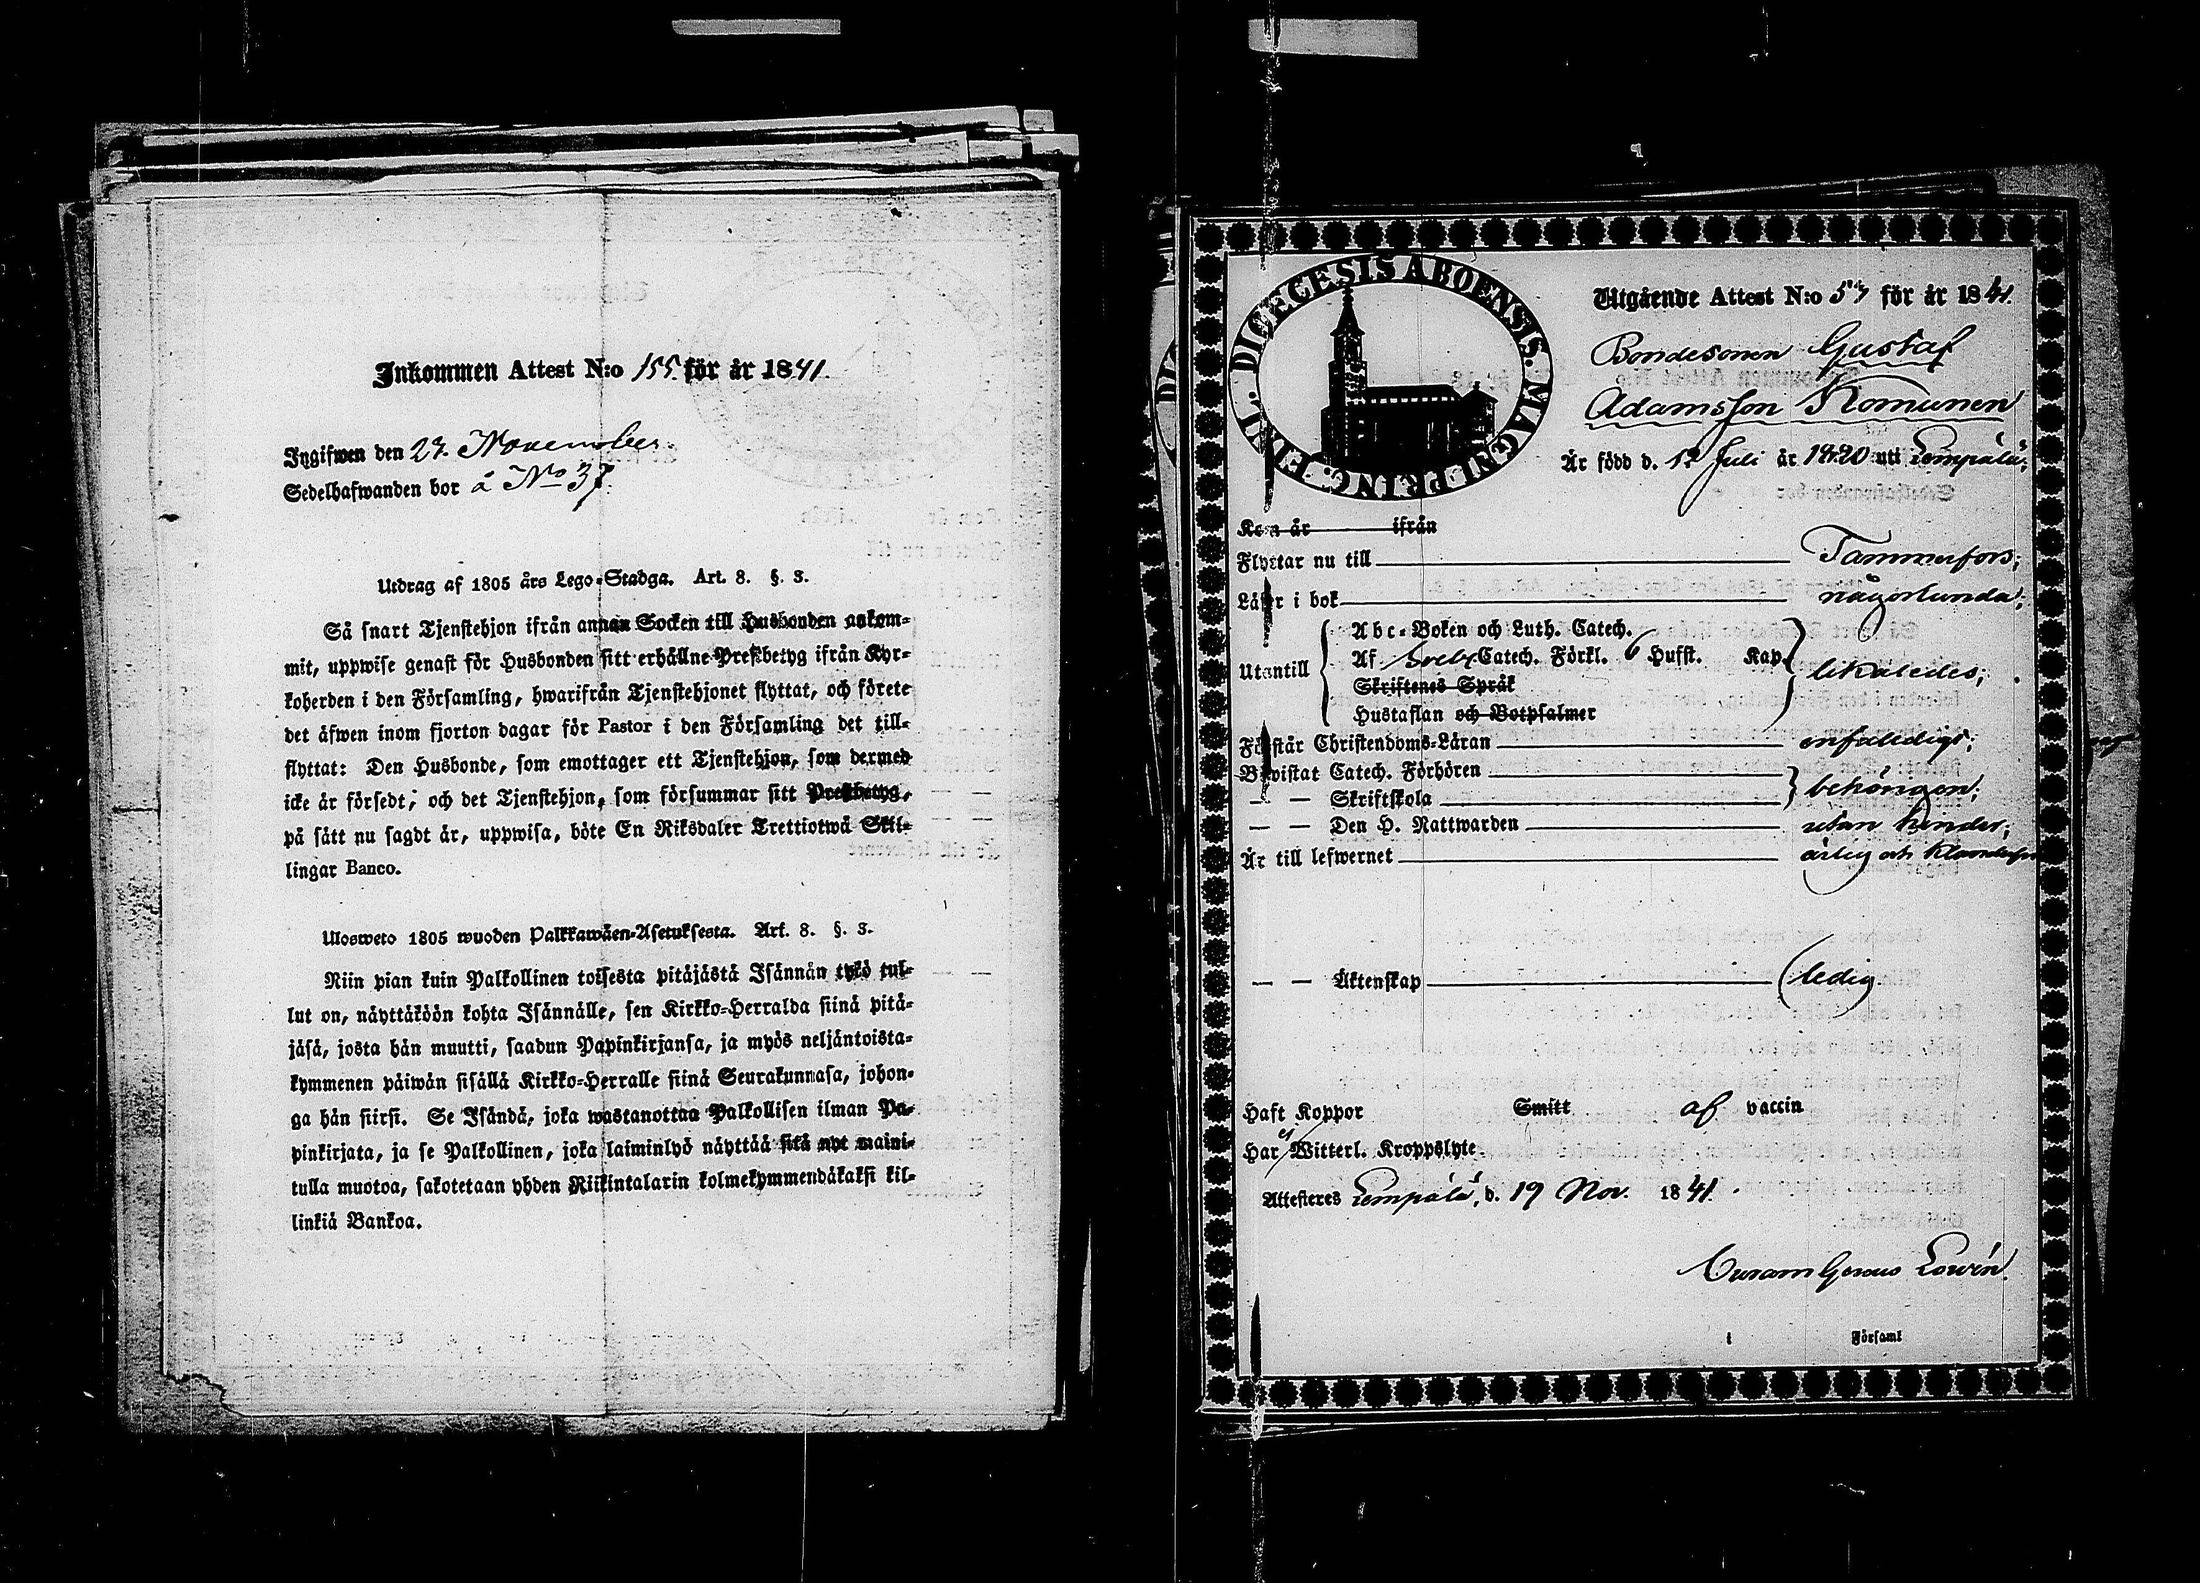 Inkommen Attest N:o 155. för år 1841.
Ingifwen den 27. November.
Sedelhafwanden bor å No 37.
Utdrag af 1805 års Lego-Stadga. Art. 8. §. 3.
Så snart Tjenstehjon ifrån annan Socken till Husbonden ankom-
mit, uppwise genast för Husbonden sitt erhållne Prestbetyg ifrån Kyr-
koherden i den Församling, hwarifrån Tjenstehjonet flyttat, och förete
det äfwen inom fjorton dagar för Pastor i den Församling det till-
flyttat: Den Husbonde, som emottager ett Tjenstehjon, som dermed
icke är försedt, och det Tjenstehjon, som försummar sitt Prestbetyg,
på sätt nu sagdt är, uppwisa, böte En Riksdaler Trettiotwå Skil-
lingar Banco.
Ulosweto 1805 wuoden Palkkawäen-Asetuksesta. Art. 8. §. 3.
Niin pian kuin Palkollinen toisesta pitäjästä Isännän tykö tul-
lut on, näyttäköön kohta Isännälle, sen Kirkko-Herralda siinä pitä-
jäsä, josta hän muutti, saadun Papinkirjansa, ja myös neljäntoista-
kymmenen päiwän sisällä Kirkko-Herralle siinä Seurakunnasa, johon-
ga hän siirsi. Se Isändä, joka wastanottaa Palkollisen ilman Pa-
pinkirjata, ja se Palkollinen, joka laiminlyö näyttää sitä nyt maini-
tulla muotoa, sakotetaan yhden Riikintalarin kolmekymmendäkaksi kil-
linkiä Bankoa.
DIOECESIS ABOENSIS. MAGNI PRINC. FINL.
Utgående Attest N:o 57 för år 1841.
Bondesonen Gustaf
Adamsson Komunen
Är född d. 12 Juli år 1820 uti Lempälä;
Kom år ifrån
Flyttar nu till Tammerfors;
Läser i bok någorlunda;
Utantill
Abc-Boken och Luth. Catech.
Af Sveb. Catech. Förkl. 6 Hufst. Kap.
Skriftenes Språk
likaledes;
Hustaflan och Botpsalmer
Förstår Christendoms-Läran enfaldigt;
Bewistat Catech. Förhören
— — Skriftskola behörigen;
— — Den H. Nattwarden utan hinder;
Är till lefwernet ärlig och
— — Äktenskap ledig.
Haft Koppor Smitt af vaccin
Har ej Witterl. Kroppslyte
Attesteras Lempälä, d. 19 Nov. 1841.
Curam Gerens Lowén.
i Församl